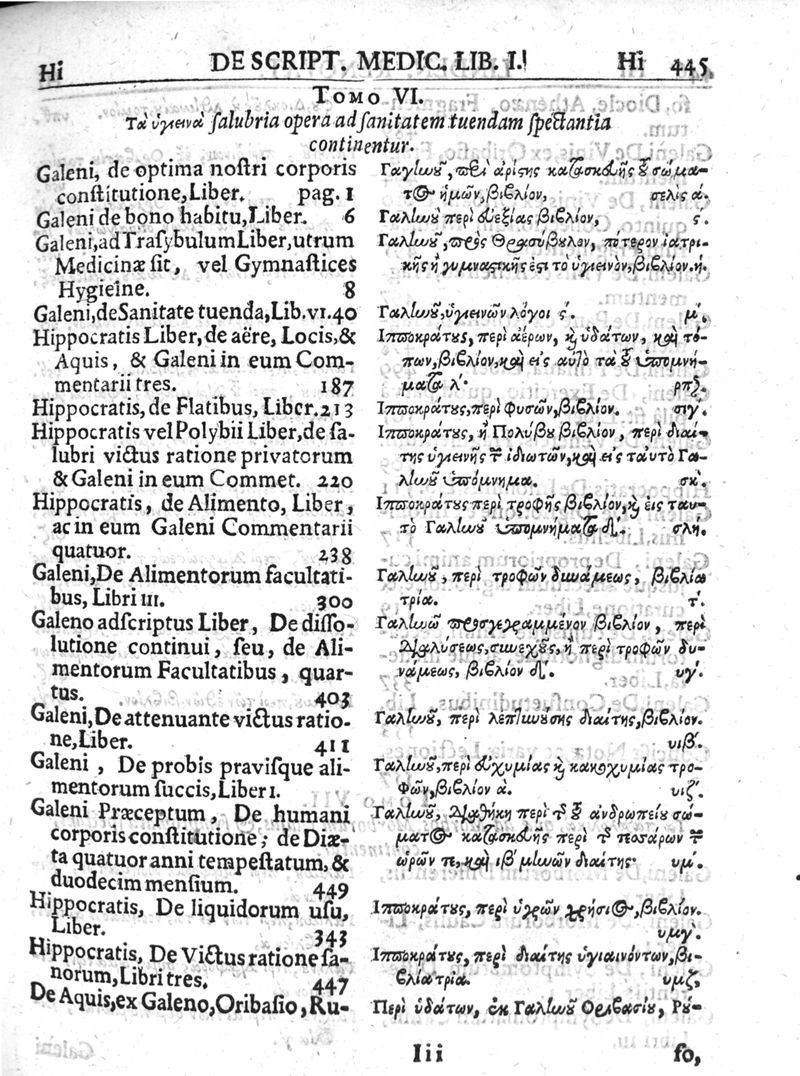 Hi
DE SCRIPT. MEDIC. LIB. I.
Hi 445
TOMO VI.
Τὰ ὑγιεινὰ salubria opera ad sanitatem tuendam spectantia
continentur.
Galeni, de optima nostri corporis
constitutione, Liber. pag. 1
Galeni de bono habitu, Liber. 6
Galeni, ad Trasybulum Liber, utrum
Medicinæ sit, vel Gymnastices
Hygieine. 8
Galeni, de Sanitate tuenda, Lib. VI. 40
Hippocratis Liber, de aëre, Locis, &
Aquis, & Galeni in eum Com-
mentarii tres. 187
Hippocratis, de Flatibus, Liber. 213
Hippocratis vel Polybii Liber, de sa-
lubri victus ratione privatorum
& Galeni in eum Commet. 220
Hippocratis, de Alimento, Liber,
ac in eum Galeni Commentarii
quatuor. 238
Galeni, De Alimentorum facultati-
bus, Libri III. 300
Galeno adscriptus Liber, De disso-
lutione continui, seu, de Ali-
mentorum Facultatibus, quar-
tus. 403
Galeni, De attenuante victus ratio-
ne, Liber. 411
Galeni, De probis pravisque ali-
mentorum succis, Liber I.
Galeni Præceptum, De humani
corporis constitutione; de Diæ-
ta quatuor anni tempestatum, &
duodecim mensium. 449
Hippocratis, De liquidorum usu,
Liber. 343
Hippocratis, De Victus ratione sa-
norum, Libri tres. 447
De Aquis, ex Galeno, Oribasio, Ru-
Γαληνοῦ, περὶ ἀρίστης κατασκευῆς τοῦ σώμα-
τος ἡμῶν, βιβλίον, σελὶς ά.
Γαληνοῦ περὶ εὐεξίας βιβλίον, ς.
Γαληνοῦ, πρὸς Θρασύβουλον, πότερον ἰατρι-
κῆς ἢ γυμναστικῆς ἐστι τὸ ὑγιεινὸν, βιβλίον, ή.
Γαληνοῦ, ὑγιεινῶν λόγοι ς. μ΄.
Ιπποκράτους, περὶ ἀέρων, καὶ ὑδάτων, καὶ τό-
πων, βιβλίον, καὶ εἰς αὐτὸ τὰ τοῦ ὑπομνή-
ματα ρπζ.
Ιπποκράτους, περὶ φυσῶν, βιβλίον. σιγ΄.
Ιπποκράτους, ἢ Πολύβου βιβλίον, περὶ διαί-
της ὑγιεινῆς τῶν ἰδιωτῶν, καὶ εἰς ταὐτὸ Γα-
ληνοῦ ὑπόμνημα. σκ΄.
Ιπποκράτους περὶ τροφῆς βιβλίον, καὶ εἰς ταυ-
τὸ Γαληνοῦ ὑπομνήματα δ΄. σλή.
Γαληνοῦ, περὶ τροφῶν δυνάμεως, βιβλία
τρία. τ΄.
Γαληνῷ προσγεγραμμένον βιβλίον, περὶ
διαλύσεως, συνεχοῦς, ἢ περὶ τροφῶν δυ-
νάμεως, βιβλίον δ΄. υγ΄.
Γαληνοῦ, περὶ λεπτυνούσης διαίτης, βιβλίον.
υιβ΄.
Γαληνοῦ, περὶ εὐχυμίας καὶ κακοχυμίας τρο-
φῶν, βιβλίον α. υιζ΄.
Γαληνοῦ, διαθήκη περὶ τῆς τοῦ ἀνθρωπείου σώ-
ματος κατασκευῆς περὶ τῶν τεσσάρων τῶν
ὡρῶν τε, καὶ ιβ μηνῶν διαίτης· υμ΄.
Ιπποκράτους, περὶ ὑγρῶν χρήσιος, βιβλίον.
υμγ΄.
Ιπποκράτους, περὶ διαίτης ὑγιαινόντων, βι-
βλία τρία. υμζ.
Περὶ ὑδάτων, ἐκ Γαληνοῦ Ορειβασίου, Ρύ-
Iii
fo,